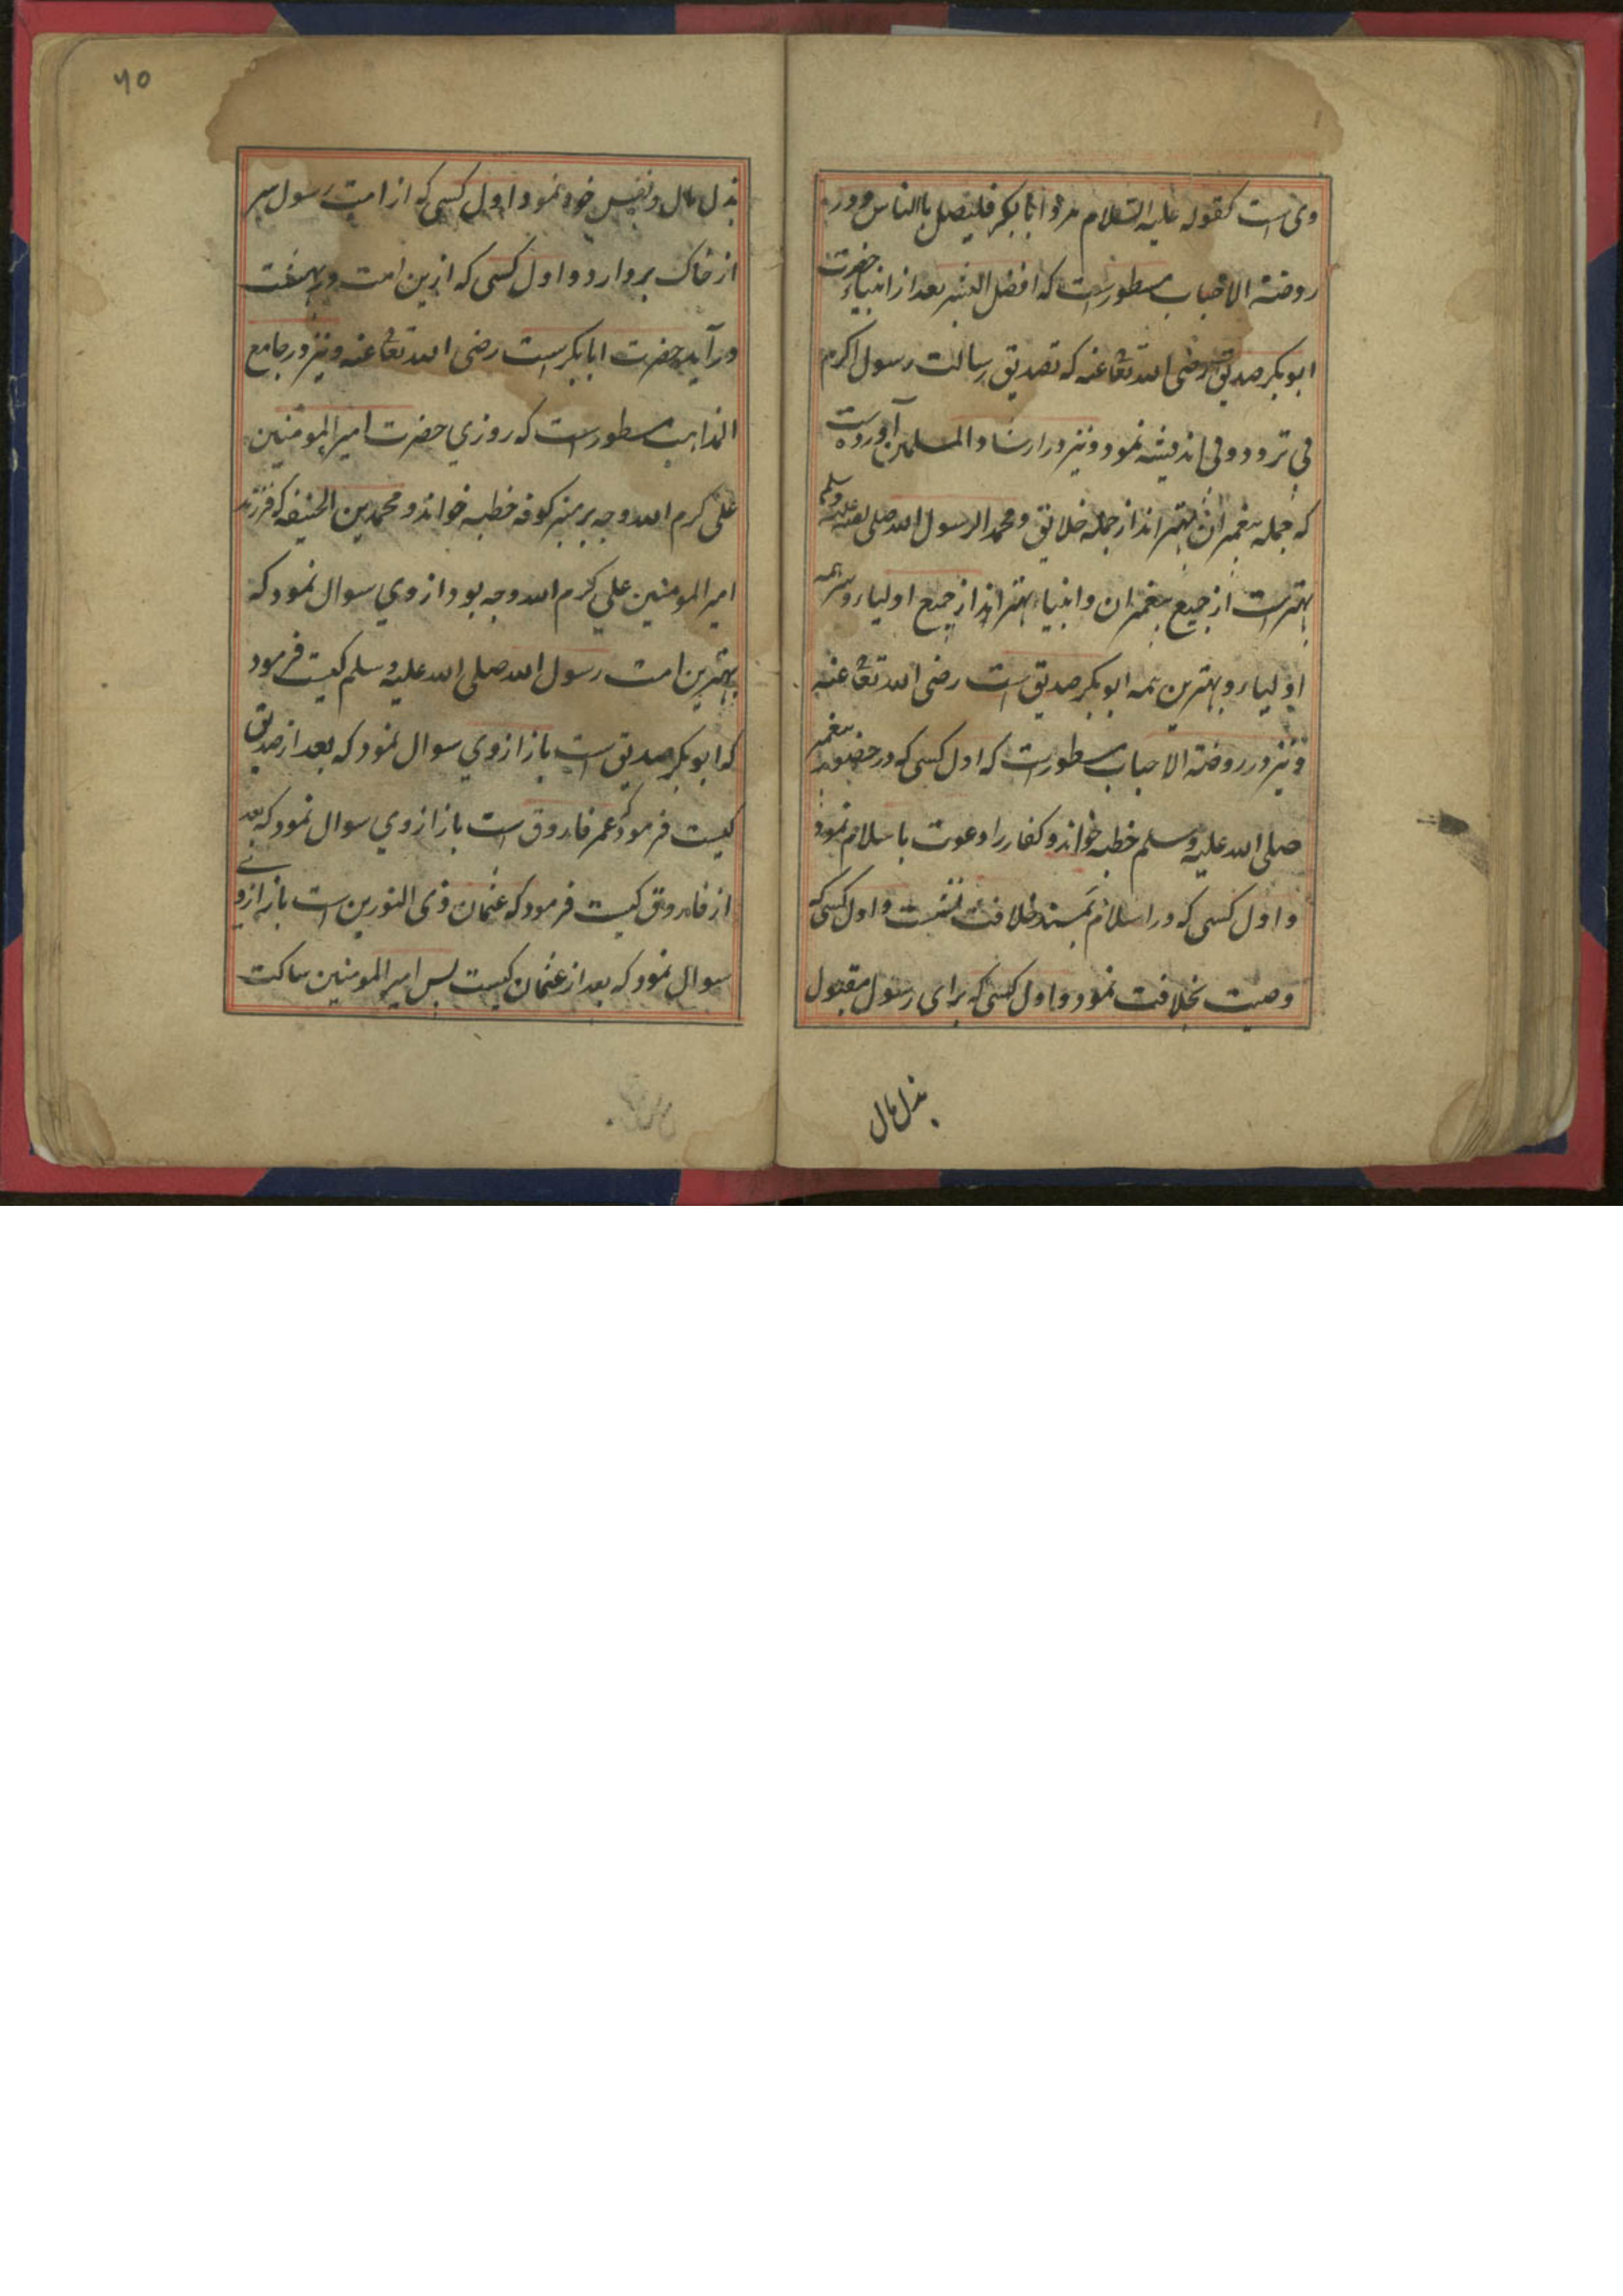 وی است کقوله علیه السلام مروا ابابکر فلیصل بالناس و در
روضة الاحباب مسطور است که افضل البشر بعد از انبیاء حضرت
ابوبکر صدیق است رضی الله تعا عنه که تصدیق رسالت رسول اکرم
بی تردد و بی اندیشه نمود و نیز در ارشاد المسلمین آورده است
که جمله پیغمبران بهتر اند از جمله خلایق و محمد الرسول الله صلی الله علیه وسلم
بهتر است از جمیع پیغمبران و انبیاء بهتر اند از جمیع اولیاء و سر همه
اولیاء و بهترین همه ابوبکر صدیق است رضی الله تعا عنه
و نیز در روضة الاحباب مسطور است که اول کسی که در حضور پیغمبر
صلی الله علیه وسلم خطبه خواند و کفار را دعوت باسلام نمود
و اول کسی که در اسلام بمسند خلافت نشست و اول کسی که
وصیت بخلافت نمود و اول کسی که برای رسول مقبول
بذل مال
٦٥
بذل مال و نفس خود نمود و اول کسی که از امت رسول سر
از خاک بردارد و اول کسی که ازین امت در بهشت
در آید حضرت ابابکر است رضی الله تعا عنه و نیز در جامع
المذاهب مسطور است که روزي حضرت امیر المومنین
علی کرم الله وجه بر منبر کوفه خطبه خواند و محمد بن الحنیفه که فرزند
امیر المومنین علی کرم الله وجه بود از وي سوال نمود که
بهترین امت رسول الله صلی الله علیه وسلم کیست فرمود
که ابوبکر صدیق است باز از وي سوال نمود که بعد از صدیق
کیست فرمود که عمر فاروق است باز از وي سوال نمود که بعد
از فاروق کیست فرمود که عثمان ذی النورین است باز از وے
سوال نمود که بعد از عثمان کیست پس امیر المومنین ساکت